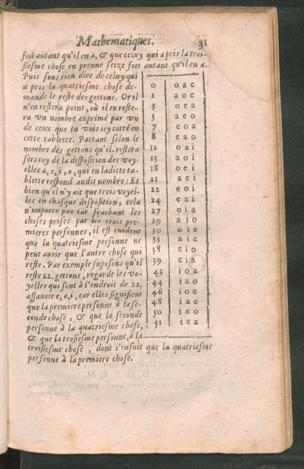 Mathematiques. 31
foix autant qu'il en a, & que celuy qui a pris la troi-
siesme chose en prenne seize fois autant qu'il en a.
Puis sans rien dire de celuy qui
a pris la quatriesme chose de-
mande le reste des gettons. Or il
n'en restera point, où il en reste-
ra un nombre exprimé par un
de ceux que tu vois icy cotté en
cette tablette. Partant selon le
nombre des gettons qu'il restera
sers toy de la disposition des voy-
elles a, e, i, o, qui en laditte ta-
blette respond audit nombre: Et
bien qu'il n'y ait que trois voyel-
les en chasque disposition, cela
n'importe pas car sçachant les
choses prises par les trois pre-
mieres personnes, il est evident
que la quatriesme personne ne
peut avoir que l'autre chose qui
reste. Par exemple suposons qu'il
reste 22. gettons, regarde les vo-
yelles qui sont à l'endroit de 22,
assavoir e, o, i, car elles signifient
que la premiere personne à la se-
conde chose, & que la seconde
personne à la quatriesme chose,
& que la troisiesme personne, à la
troisiesme chose, dont s'ensuit que la quatriesme
personne à la premiere chose.
0 oae
1 aoe
3 oea
5 eoa
7
8 eao
12 oai
13 aoi
18 oei
21 aei
22 eoi
24 eai
27 oia
29 aio
30 oie
33 aie
38 eio
39 eia
43 ioa
44 iao
46 ioe
48 iae
50 ieo
51 iea